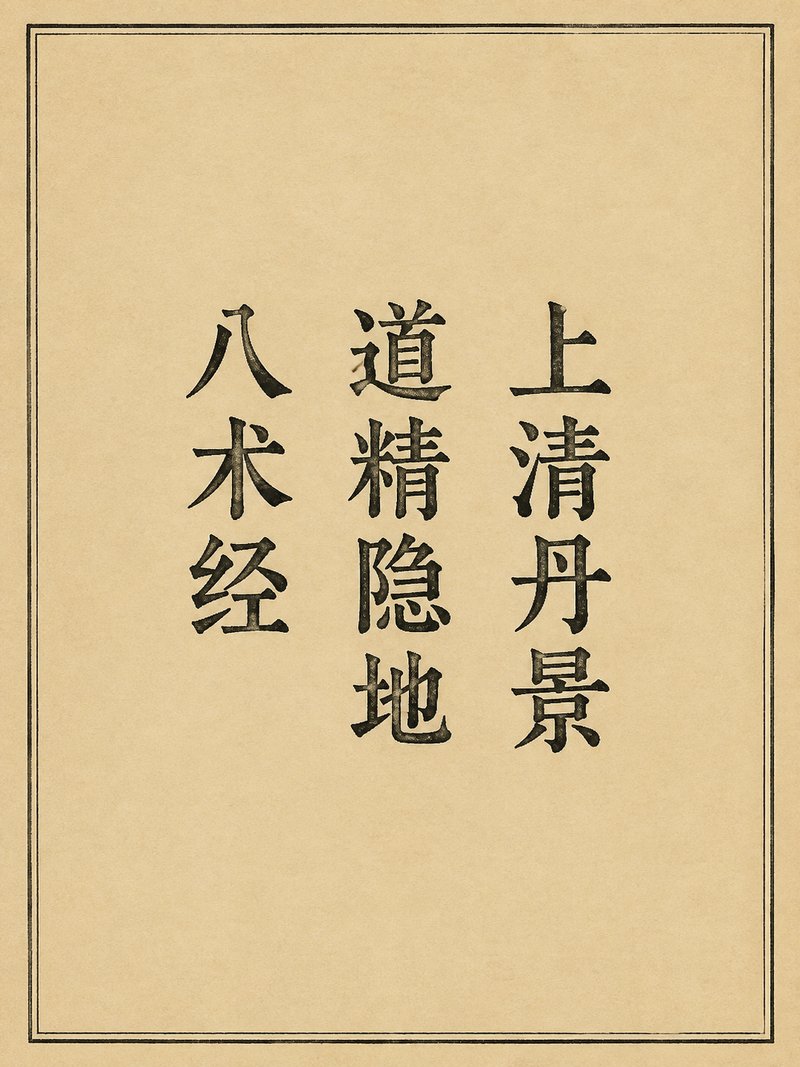 上清丹景
道精隐地
八术经